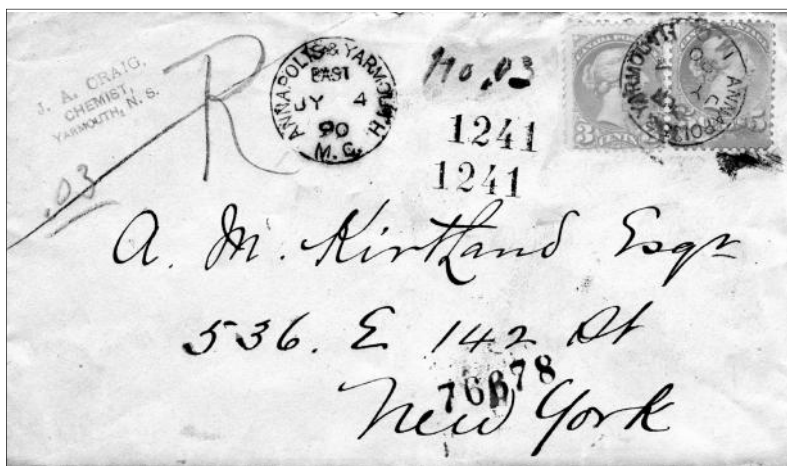 J. A. CRAIG,
CHEMIST,
YARMOUTH, N. S.
.03
R
ANNAPOLIS & YARMOUTH.
EAST
JY 4
90
M. C.
No. 03
1241
1241
3 CENTS
5
ANNAPOLIS & YARMOUTH
A. M. Kirtland Esqr
536. E 142 St
76678
New York